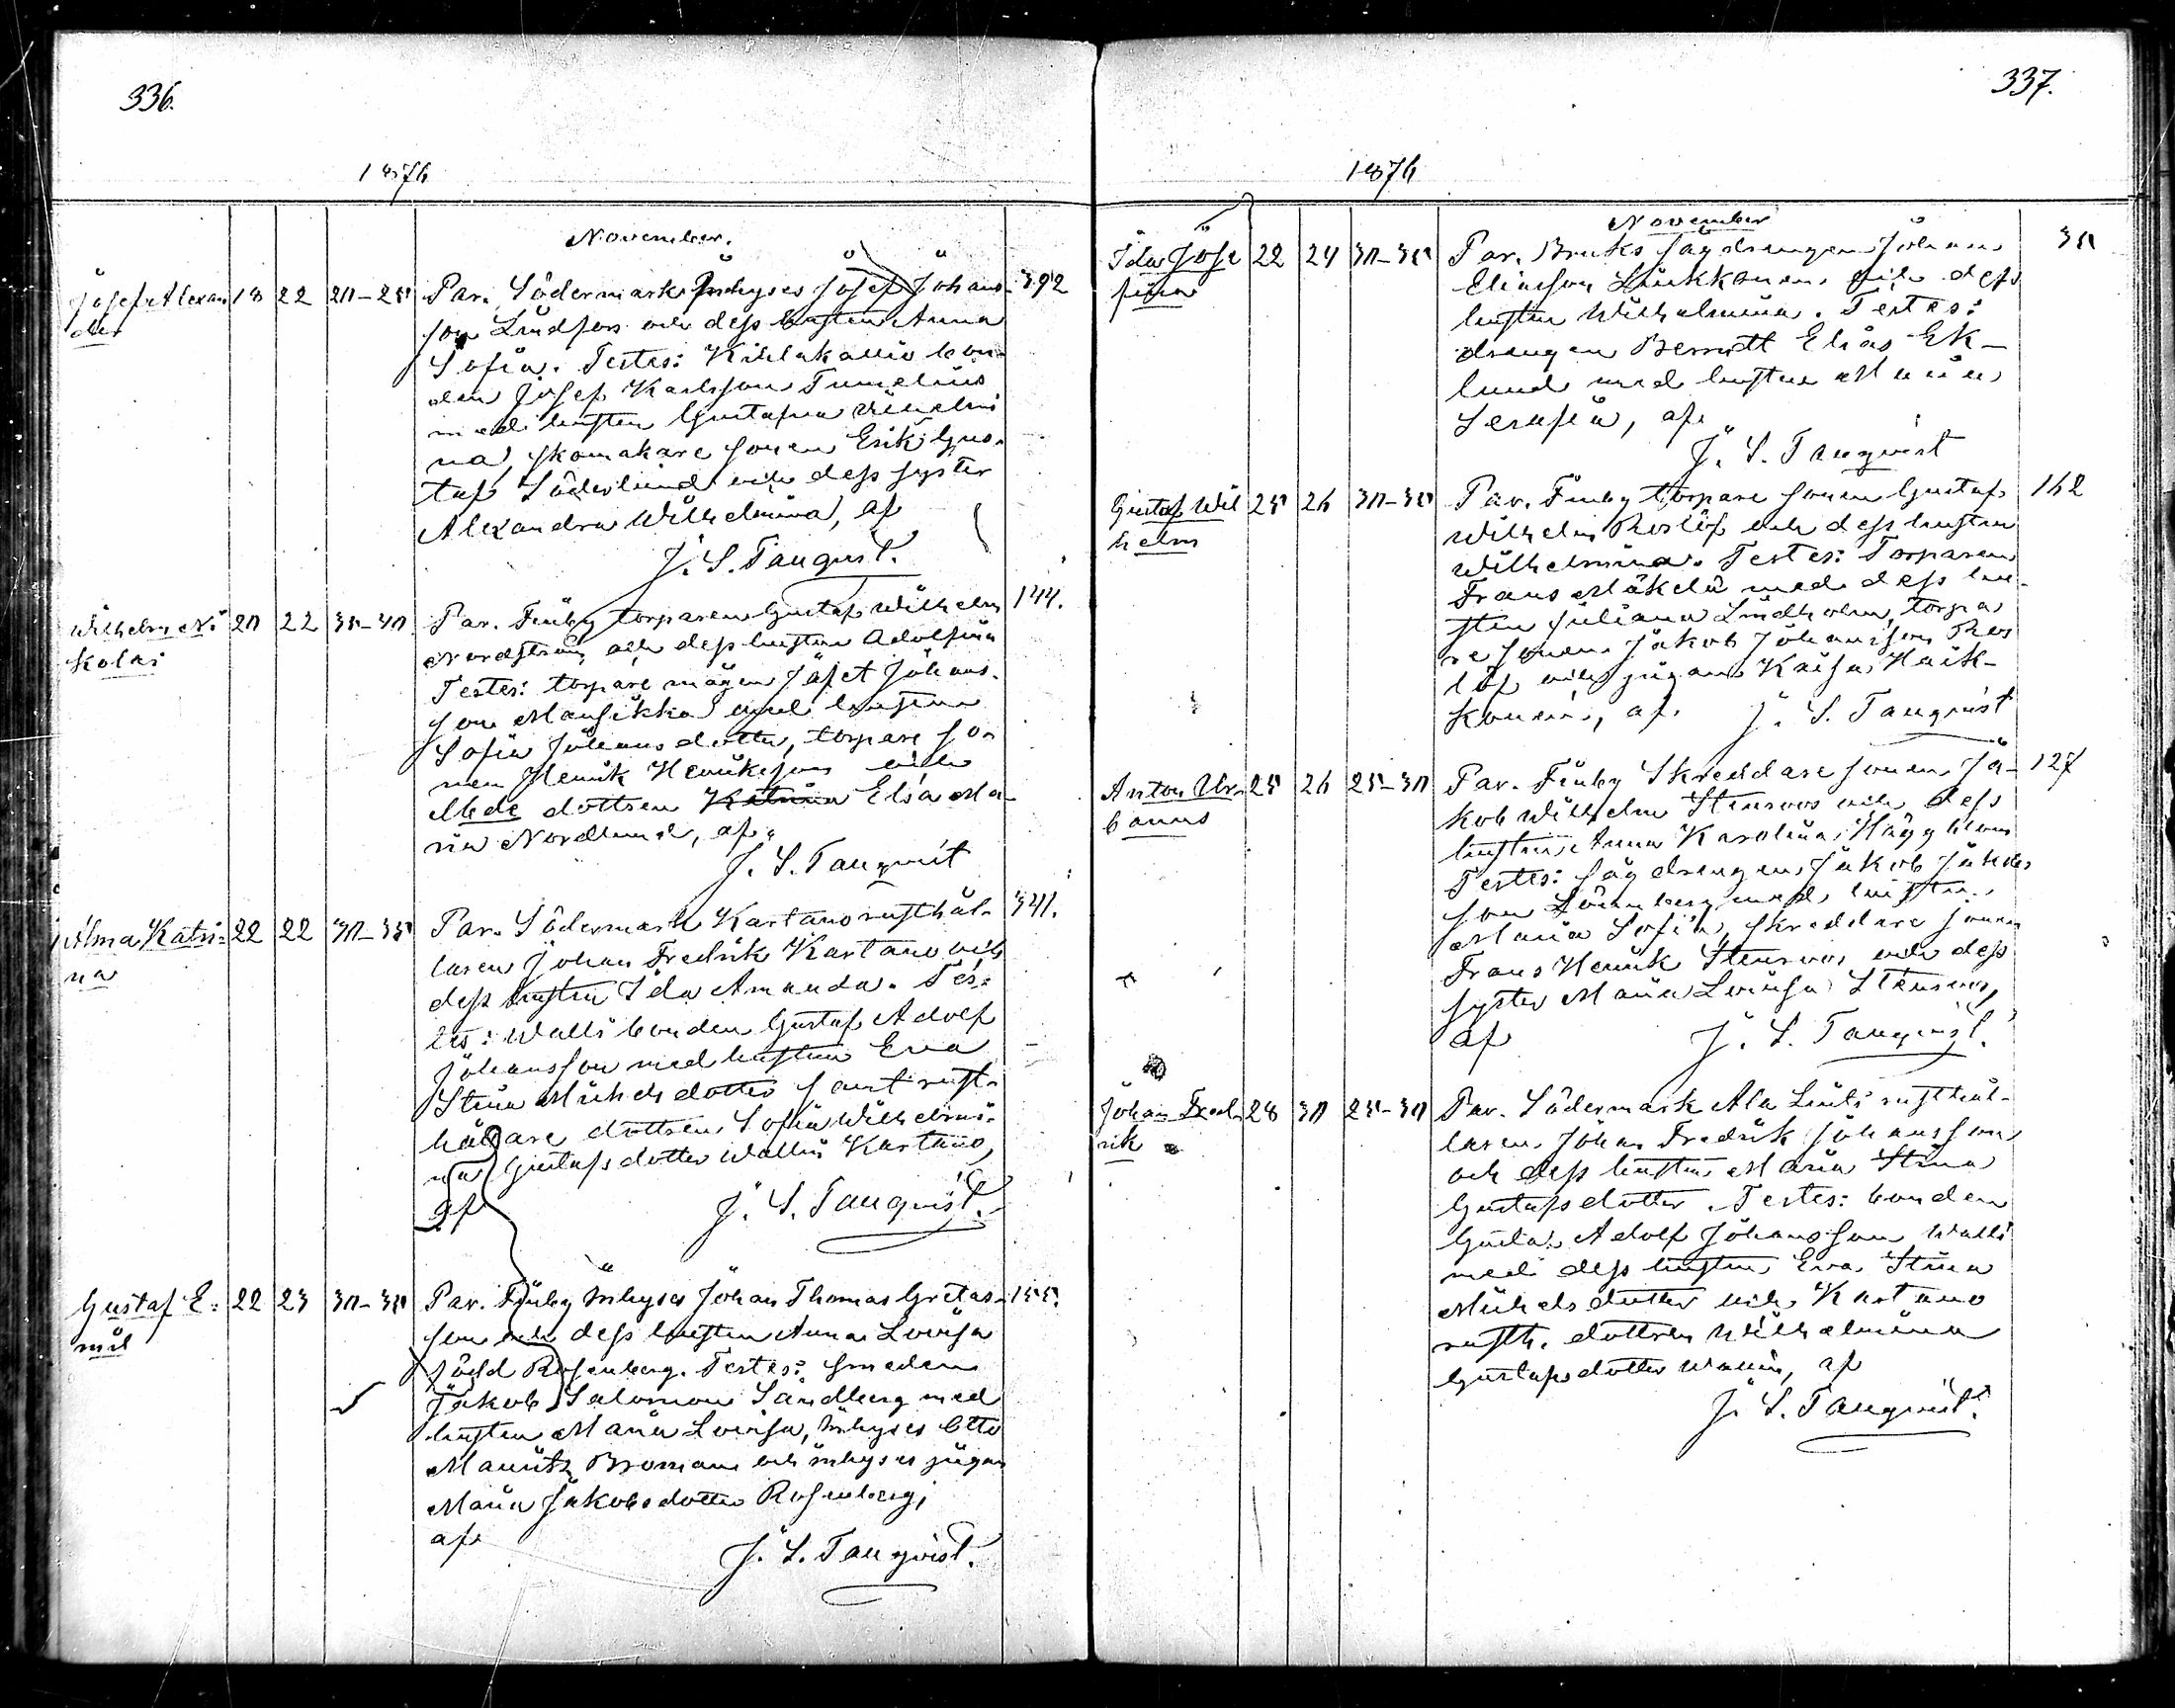 336.
1876
November.
Josef Alexan
der
18 22 20-25
Par. Södermark Inhyses Josef Johans- 392
son Lindfors och dess hustru Anna
Sofia. Testes: Kihlakallio bon-
den Josef Karlsson Tumelius
med hustrun Gustafva Vilhelmi
na, skomakare sonen Erik Gus-
taf Söderlund och dess syster
Alexandra Wilhelmina, af
J. S. Tanqvist.
Wilhelm Ni
kolai
20 22 35-40
Par. Finby torparen Gustaf Wilhelm 144.
Nordström och dess hustru Adolfina
Testes: torpare mågen Jafet Johans-
son Mansikka med hustrun
Sofia Johansdotter, torpare so-
nen Henrik Henriksson och
dottren Katrina Elsa Ma-
ria Nordlund, af
J. S. Tanqvist
Alma Katri-
na
22 22 30-35
Par. Södermark Kartano rusthål- 341.
laren Johan Fredrik Kartano och
dess hustru Ida Amanda. Tes-
tes: Walli bonden Gustaf Adolf
Johansson med hustrun Eva
Stina Michelsdotter samt rust-
hållare dottren Sofia Wilhelmi-
na Gustafsdotter Wallin Kartano,
af
J. S. Tanqvist.
Gustaf E-
mil
22 23 30-35
Par. Finby Inhyses Johan Thomas Gretas- 155.
son och dess hustru Anna Lovisa
född Rosenberg. Testes: smeden
Jakob Salomon Sandberg med
hustrun Maria Lovisa, Inhyses Otto
Mauritz Broman och inhyses pigan
Maria Jakobsdotter Rosenberg,
af
J. S. Tanqvist.
337.
1876
November
Ida Jose
fina
22 24 30-35
Par. Bruks sågdrengen Johan 30
Eliasson Linkkonen och dess
hustru Wilhelmina. Testes:
drengen Berndt Elias Ek-
lund med hustrun Maria
Serafia, af
J. S. Tanqvist
Gustaf Wil
helm
25 26 30-35
Par. Finby torpare sonen Gustaf 162
Wilhelm Roslöf och dess hustru
Wilhelmina. Testes: Torparen
Frans Mäkelä med dess hu-
stru Juliana Lindholm, torpa
re sonen Jakob Johansson Ros
löf och pigan Kaisa Haik-
konen, af J. S. Tanqvist
Anton Ur-
banus
25 26 25-30
Par. Finby Skreddare sonen Ja- 127
kob Wilhelm Stenroos och dess
hustru Anna Karolina Häggblom
Testes: sågdrengen Jakob Jakobs
son Lönnberg med hustru
Maria Sofia, skreddare sonen
Frans Henrik Stenroos och dess
syster Maria Lovisa Stenroos,
af J. S. Tanqvist.
Johan Fred-
rik
28 30 25-30
Par. Södermark Ala Linti rusthål-
laren Johan Fredrik Johansson
och dess hustru Maria Stina
Gustafsdotter. Testes: bonden
Gustaf Adolf Johansson Walli
med dess hustru Eva Stina
Michelsdotter och Kartano
rusth. dottren Wilhelmina
Gustafsdotter Wallin, af
J. S. Tanqvist.